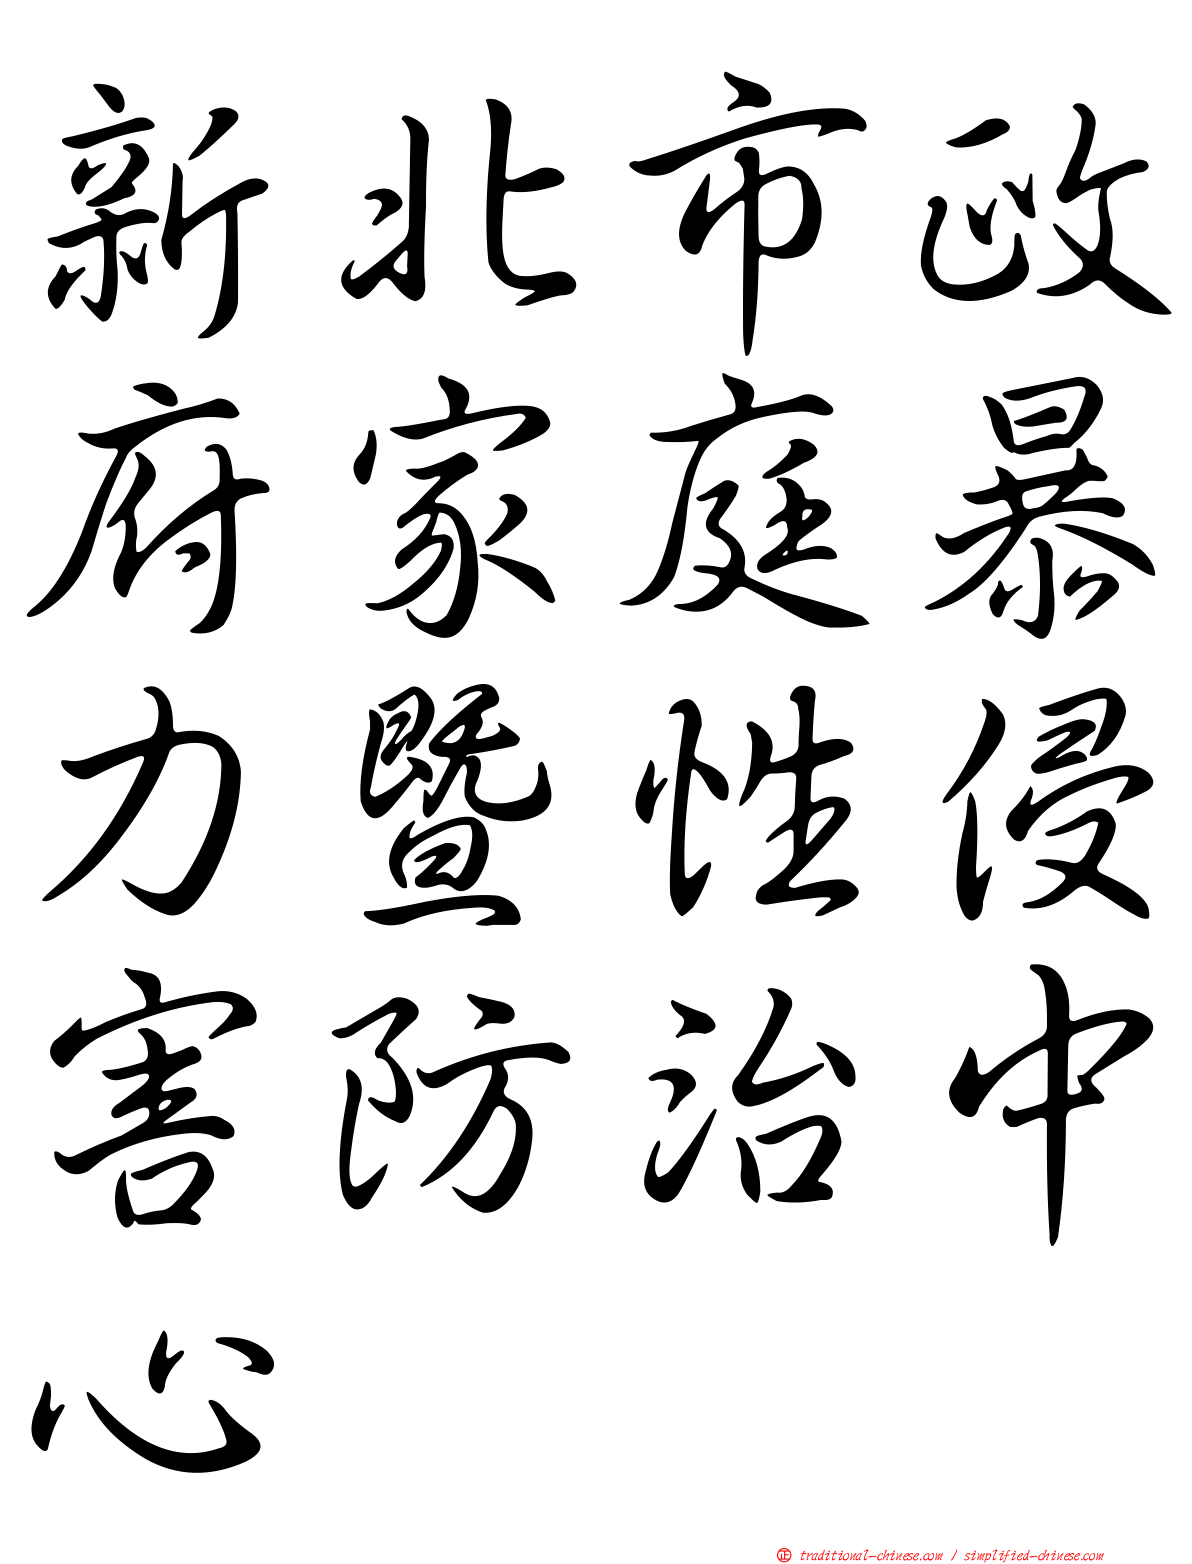 新北市政
府家庭暴
力暨性侵
害防治中
心
正 traditional-chinese.com / simplified-chinese.com